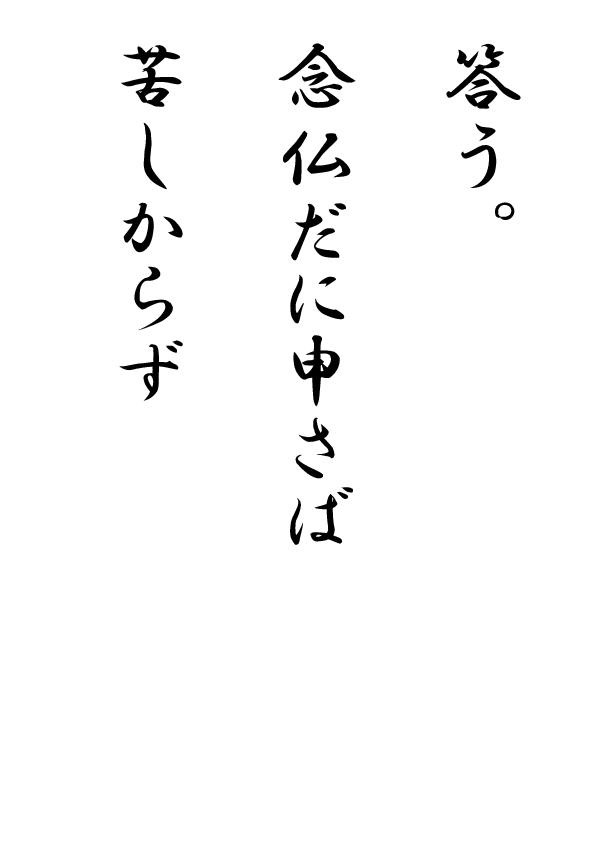 答う。
念仏だに申さば
苦しからず